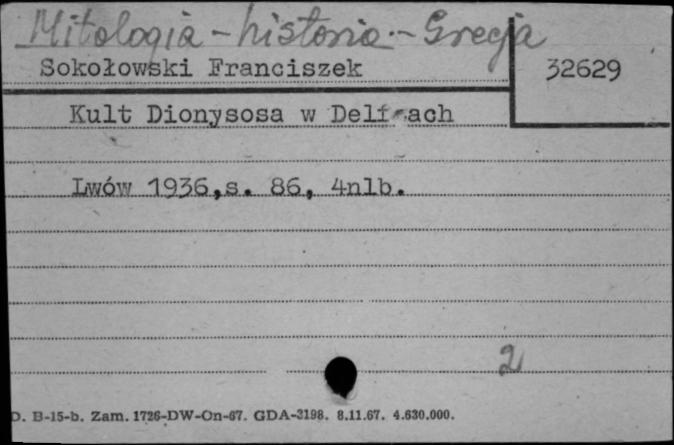 Mitologia - historia - Grecja
Sokołowski Franciszek 32629
Kult Dionysosa w Delfach
Lwów 1936,s. 86, 4nlb.
2
D. B-15-b. Zam. 1726-DW-On-67. GDA-3198. 8.11.67. 4.630.000.